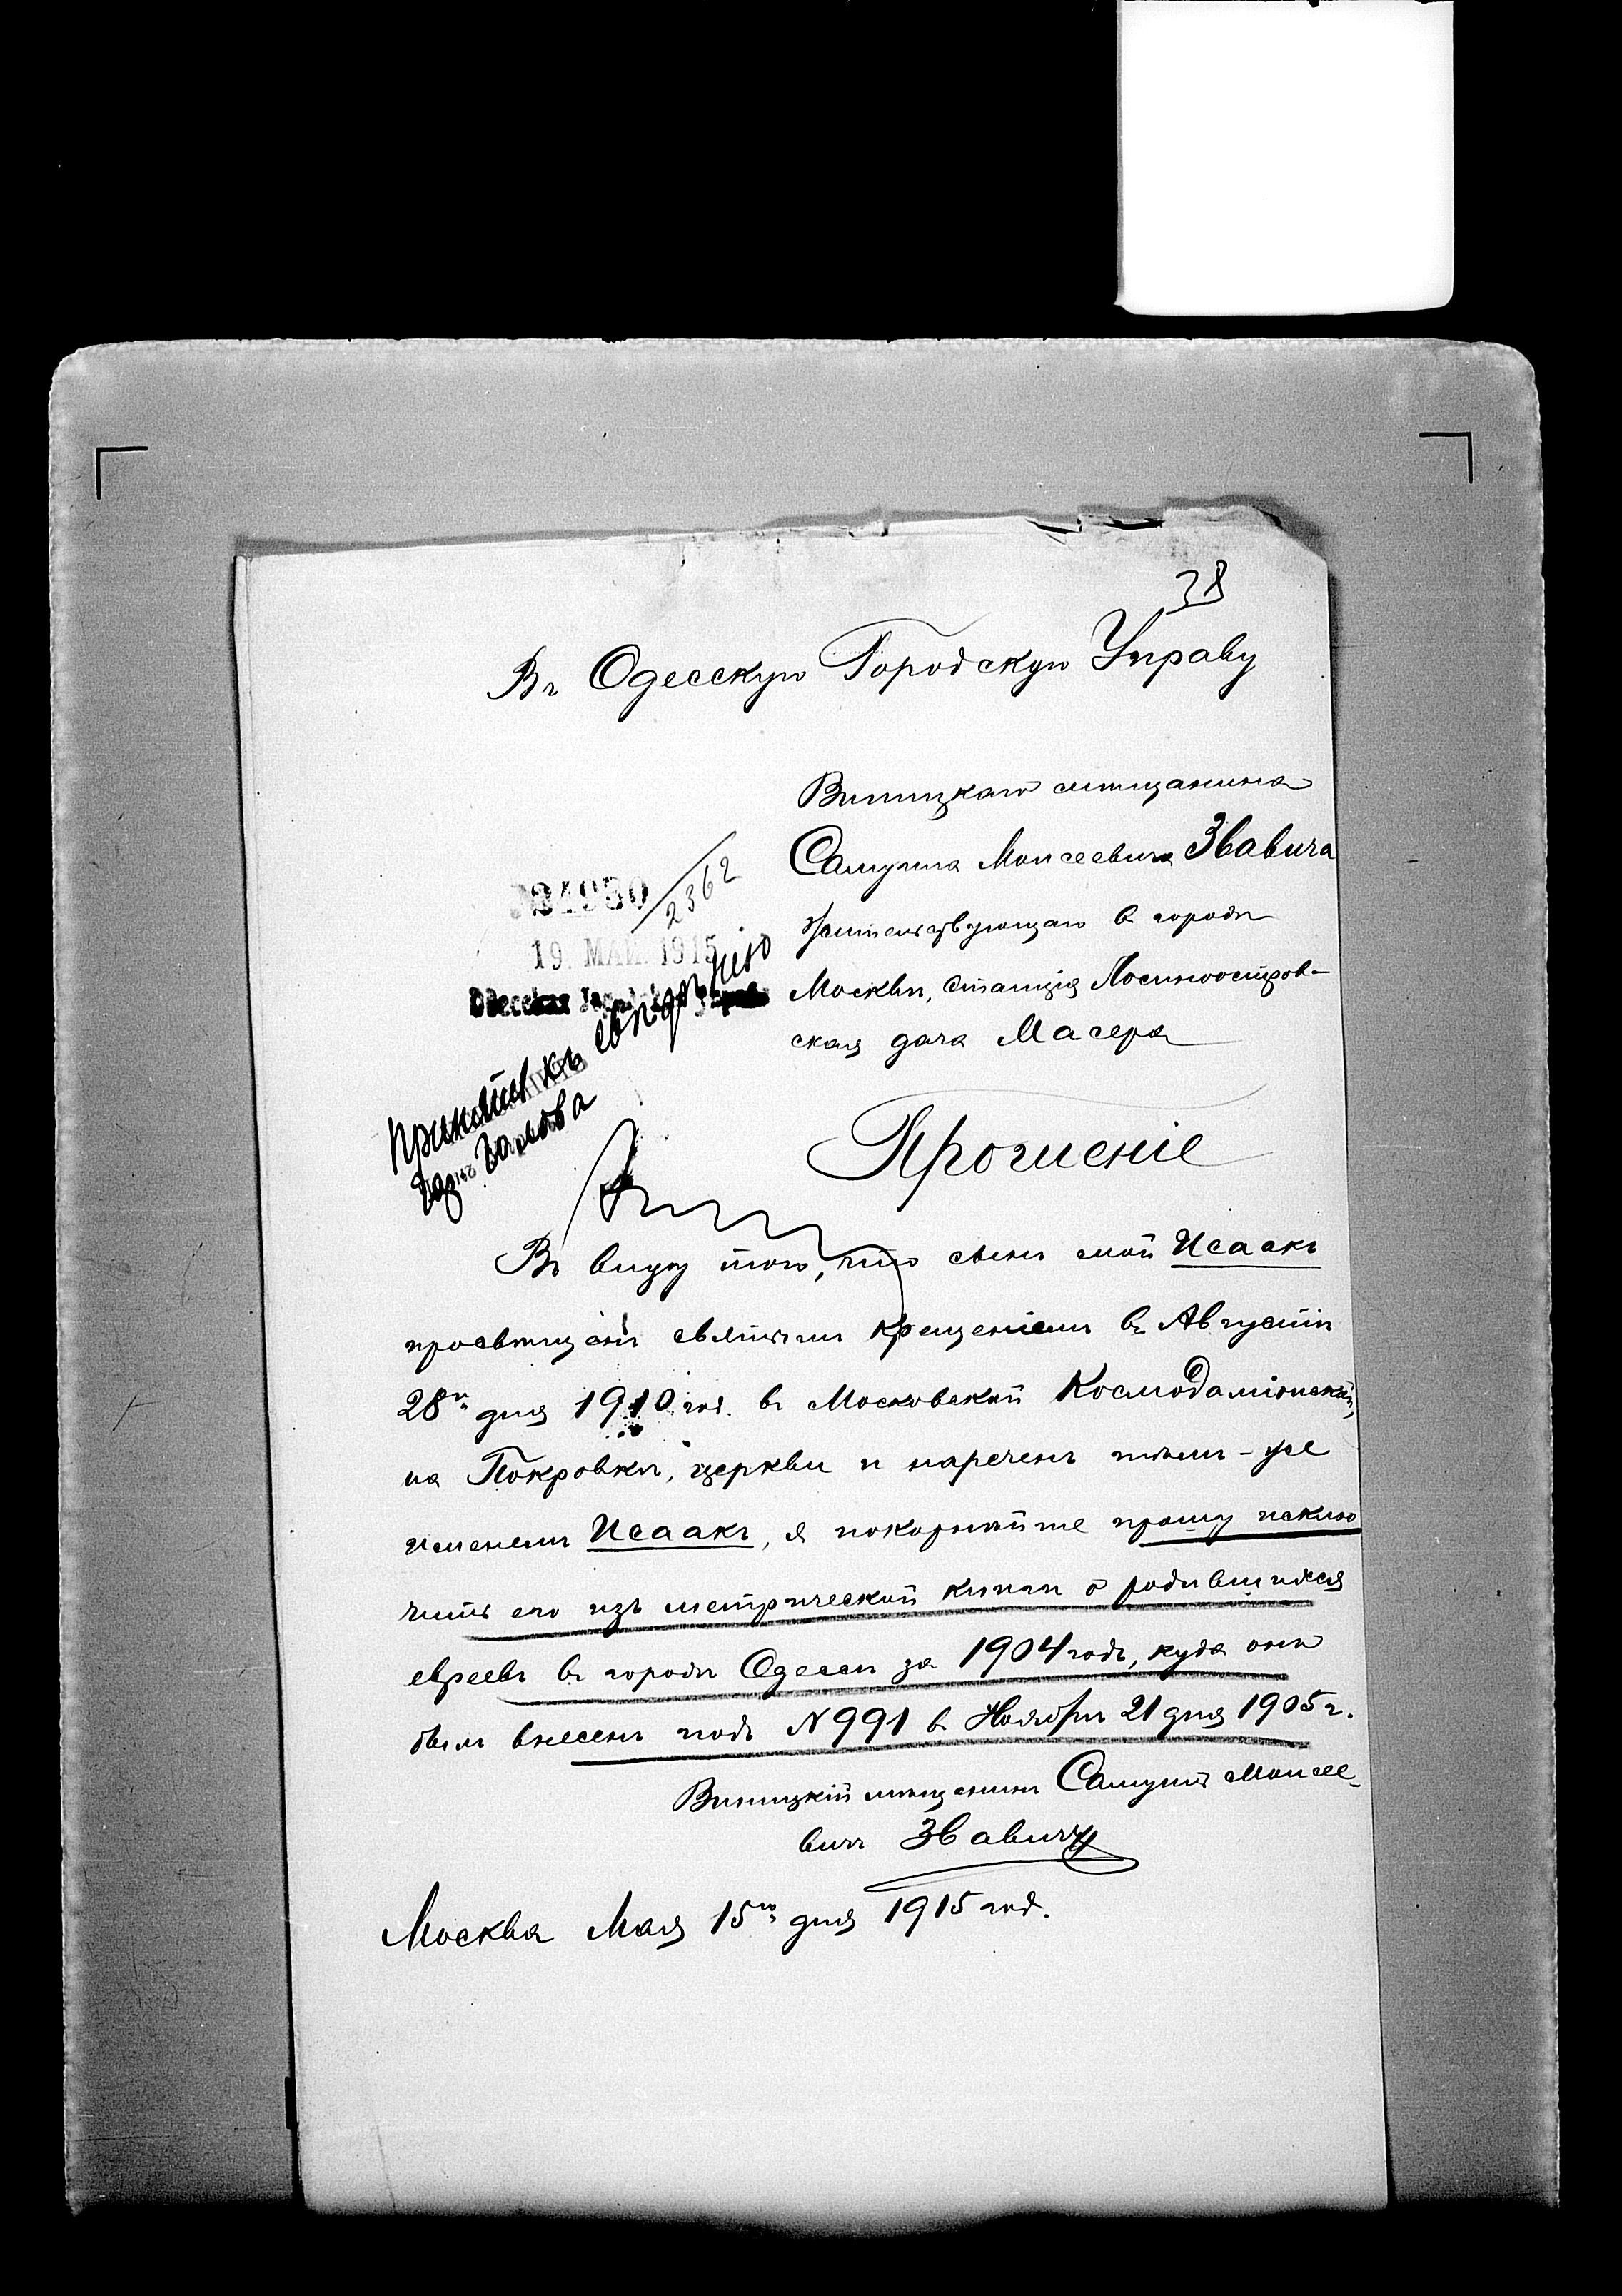 38
Въ Одесскую Городскую Управу
Виницкаго мѣщанина
Самуила Моисеевича Звавича
жительствующаго въ городѣ
Москвѣ, станція Лосиноостров-
ская дача Масера
2362
19. МАЙ. 1915
Одесская Городская Управа
Принять къ свѣдѣнію
Прошеніе
Въ виду того, что сынъ мой Исаакъ
просвѣщенъ святымъ крещеніемъ въ Августѣ
28го дня 1910 год. въ Московской Космодаміанской,
на Покровкѣ, церкви и нареченъ тѣмъ-же
именемъ Исаакъ, я покорнѣйше прошу исклю
чить его изъ метрической книги о родившихся
евреевъ въ городѣ Одессѣ за 1904 годъ, куда онъ
былъ внесенъ подъ N 991 въ Ноябрѣ 21 дня 1905 г.
Виницкій мѣщанинъ Самуилъ Моисее-
вичъ Звавичъ
Москва Мая 15го дня 1915 год.